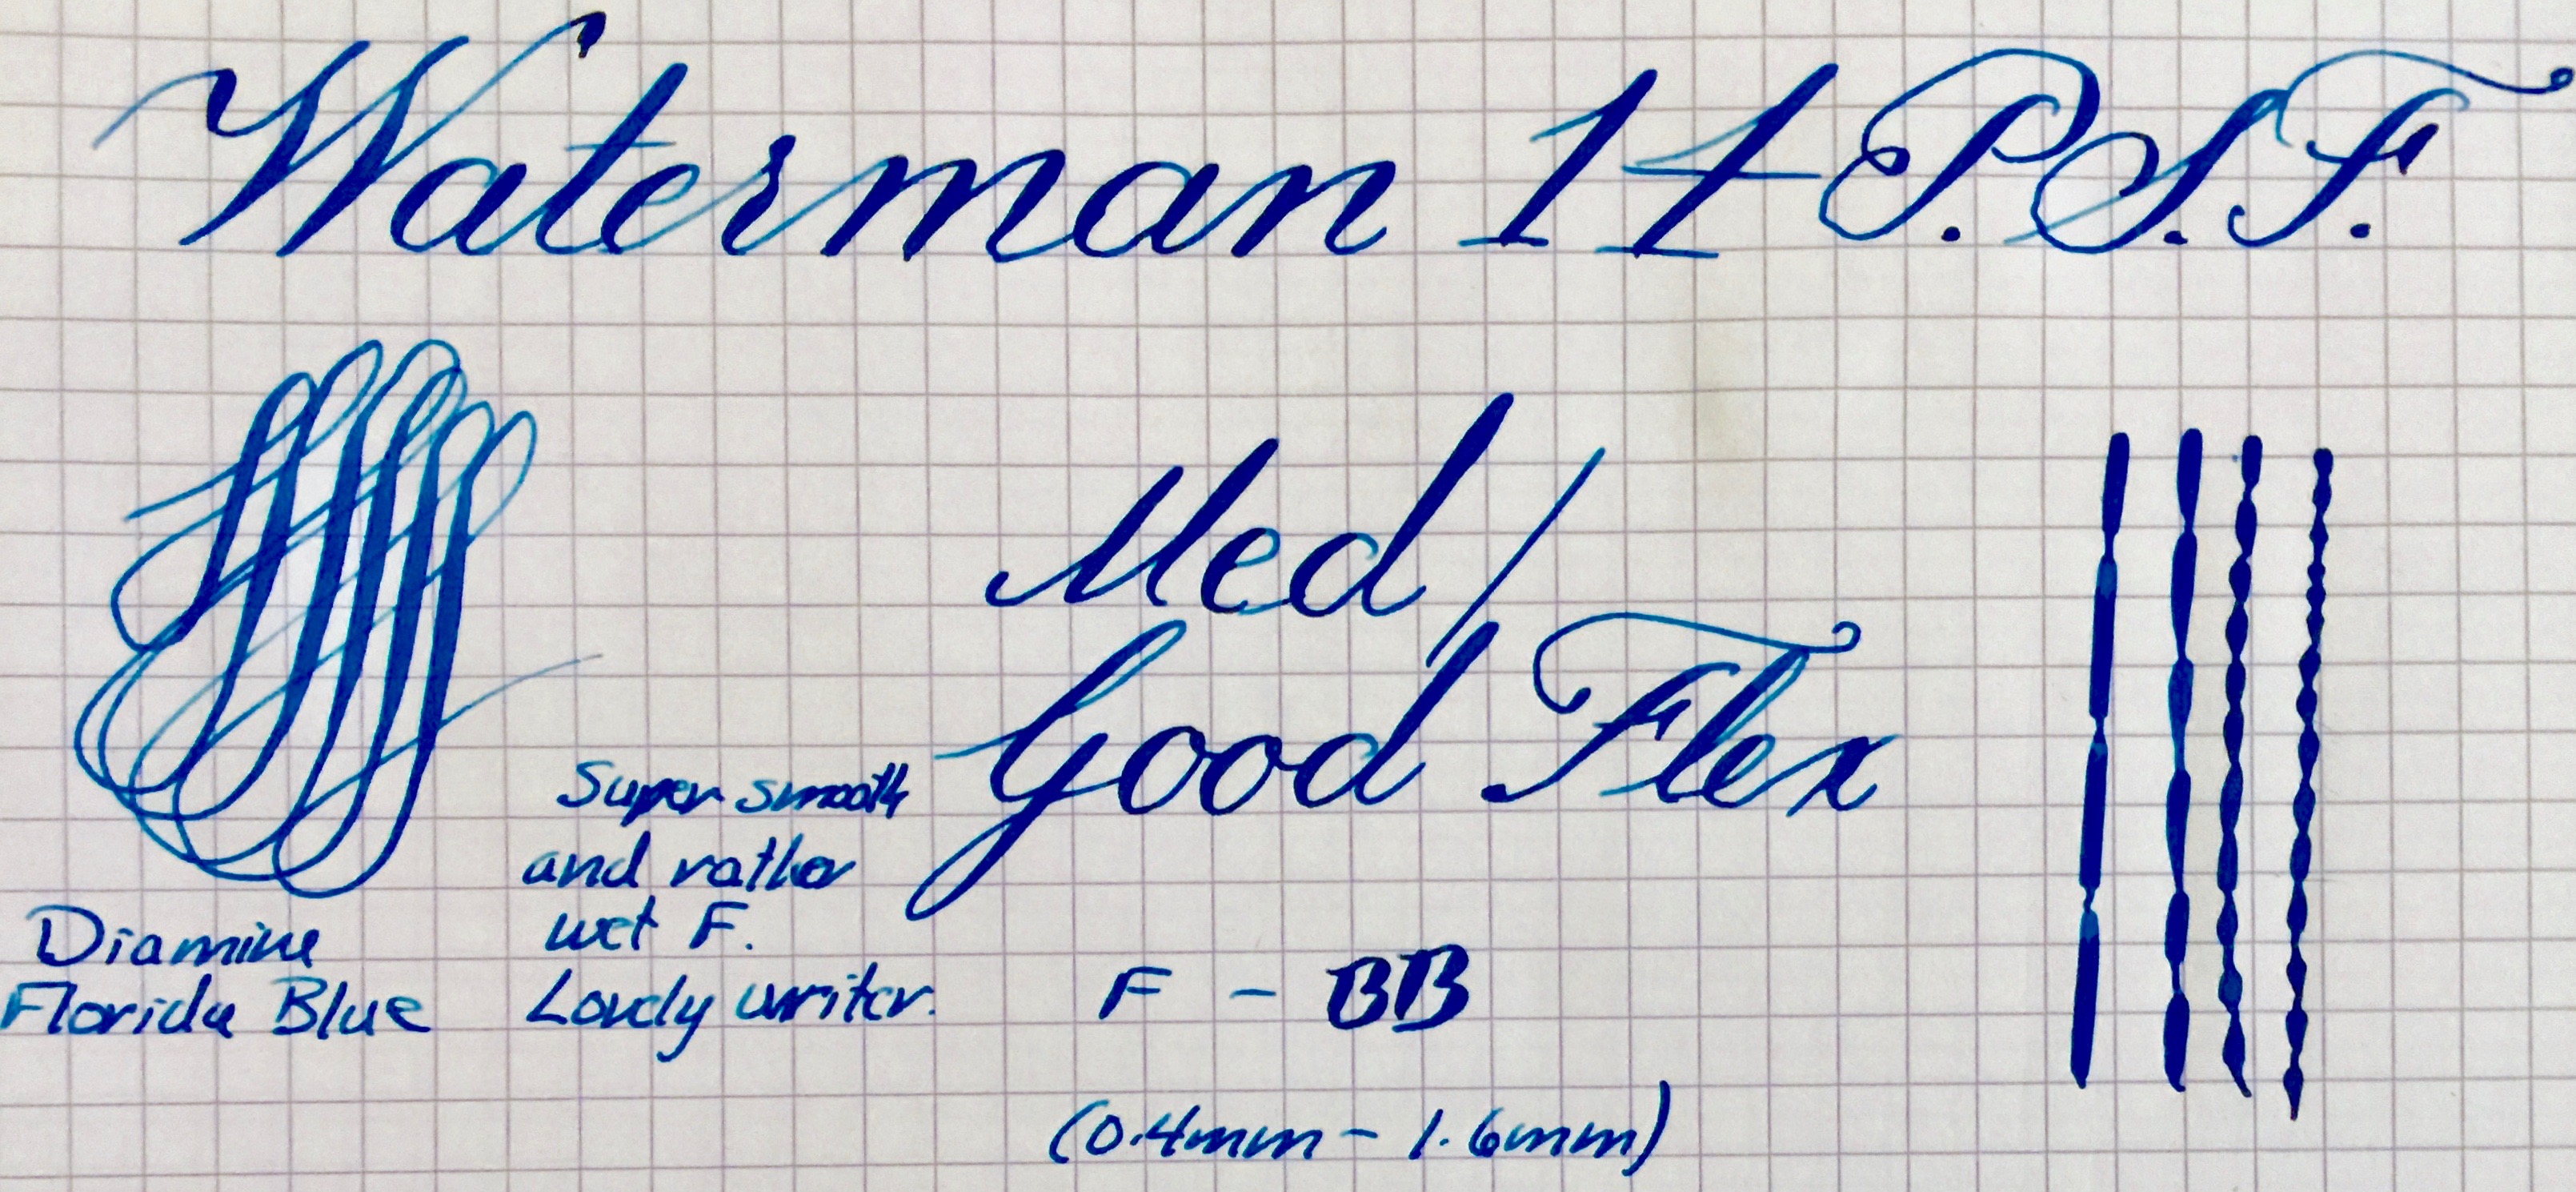 Waterman 14 P.S.F.
Med/
Good Flex
Super smooth
and rather
wet F.
Lovely writer.
Diamine
Florida Blue
F - BB
(0.4mm - 1.6mm)